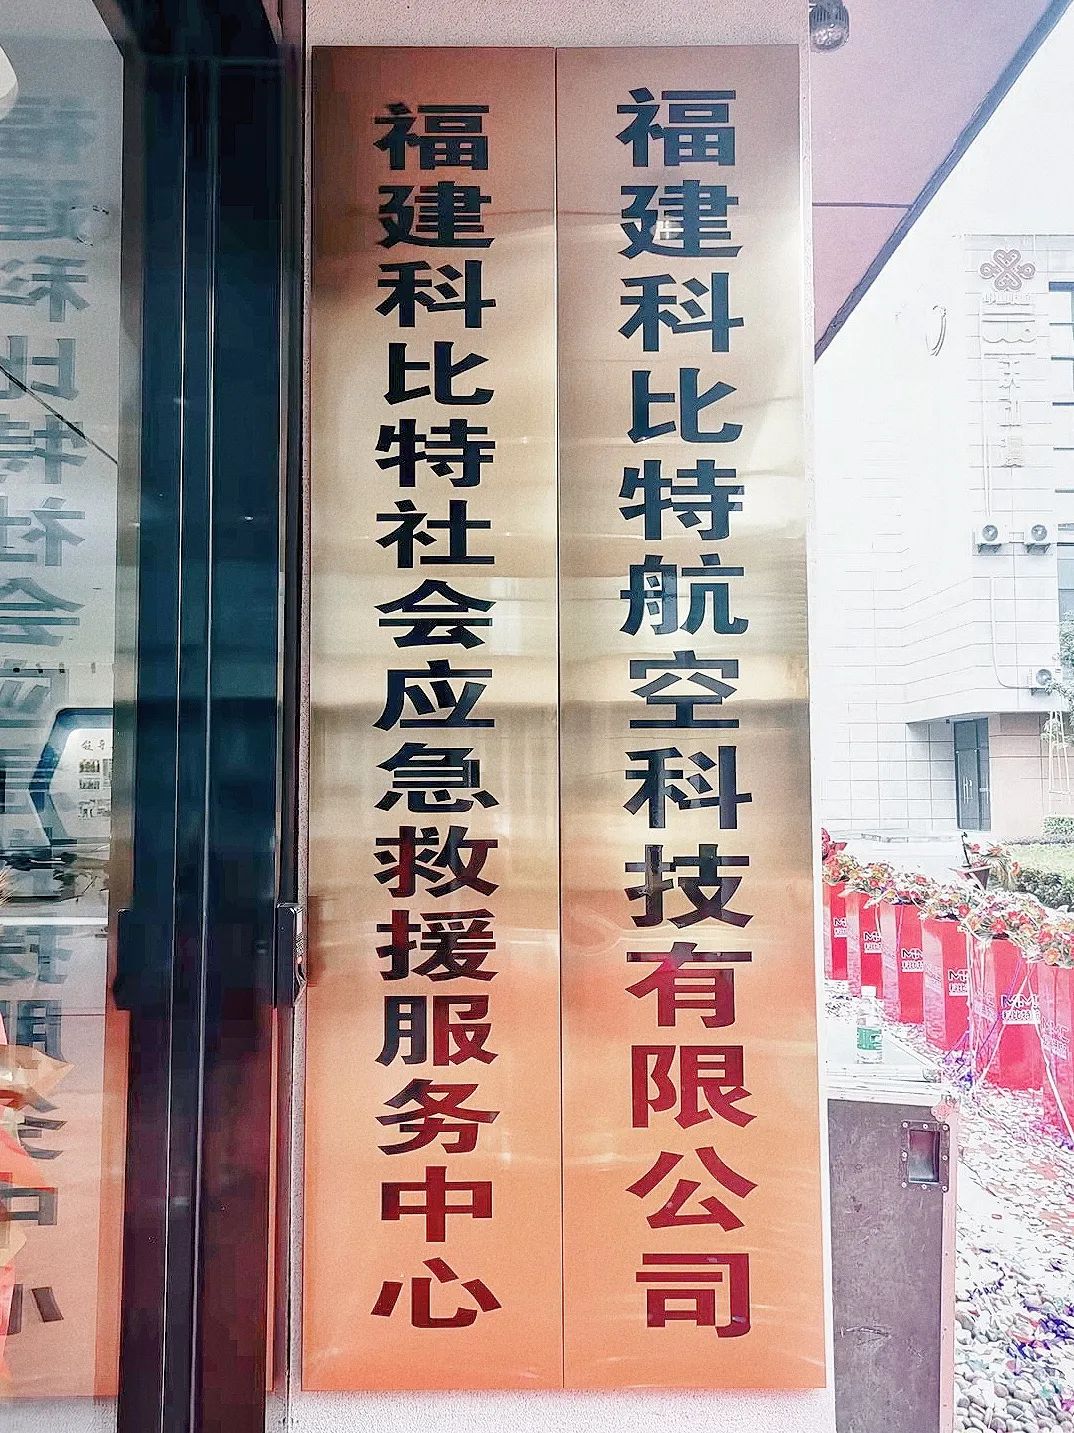 福建科比特航空科技有限公司
福建科比特社会应急救援服务中心
科比特